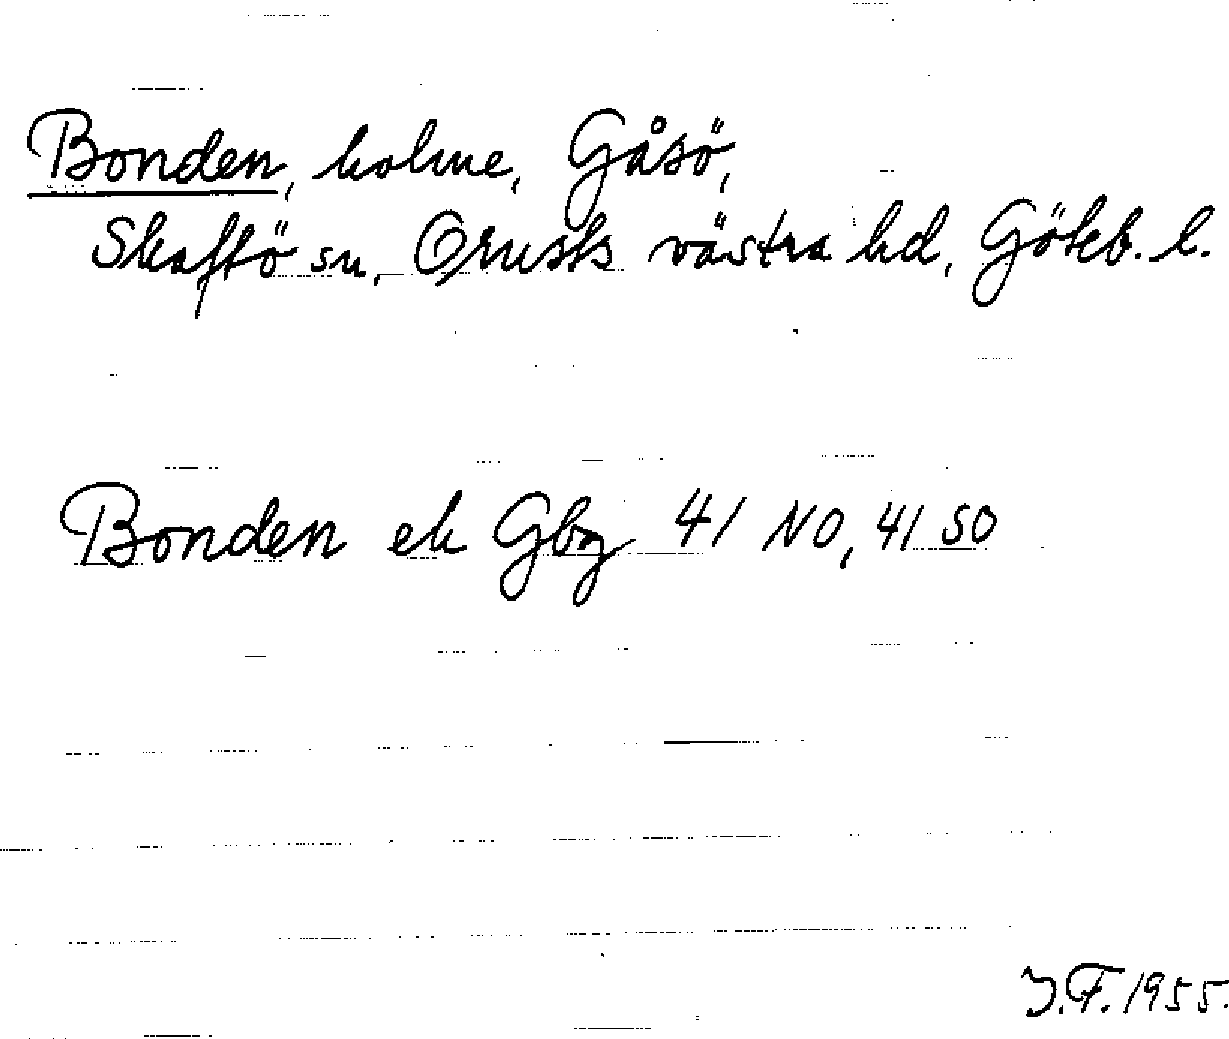 Bonden, holme, Gåsö,
Skaftö sn, Orusts västra hd, Göteb. l.
Bonden ek Gbg 41 NO, 41 SO
J.F. 1955.